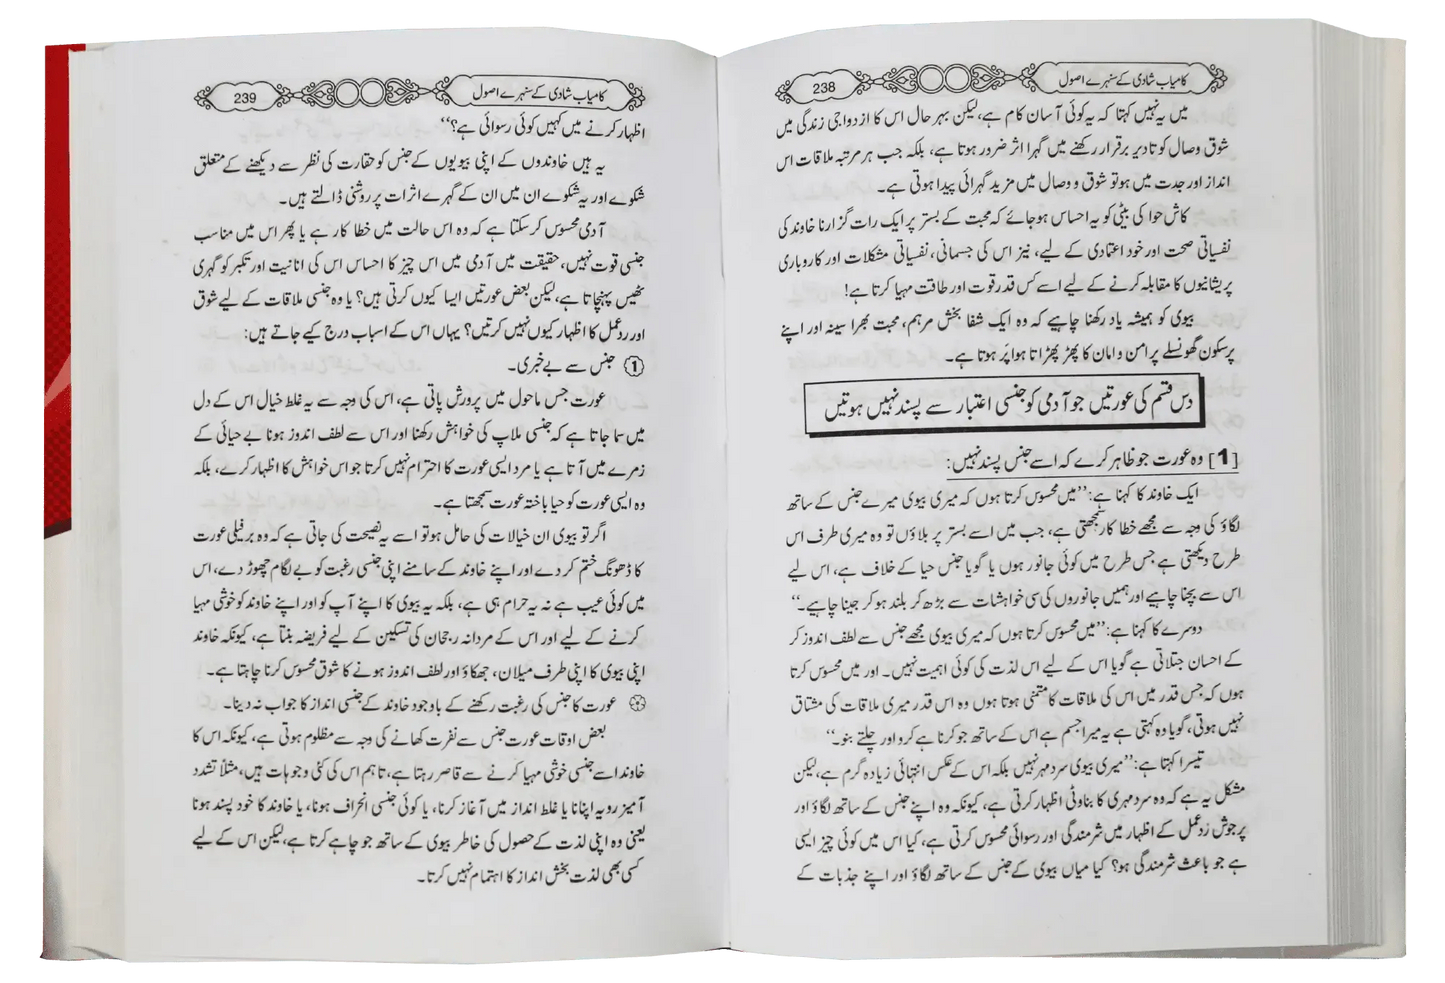 کامیاب شادی کے سنہرے اصول
238
میں یہ نہیں کہتا کہ یہ کوئی آسان کام ہے، لیکن بہر حال اس کا ازدواجی زندگی میں
شوق وصال کو تادیر برقرار رکھنے میں گہرا اثر ضرور ہوتا ہے، بلکہ جب ہر مرتبہ ملاقات اس
انداز اور جدت میں ہو تو شوق و وصال میں مزید گہرائی پیدا ہوتی ہے۔
کاش حوا کی بیٹی کو یہ احساس ہو جائے کہ محبت کے بستر پر ایک رات گزارنا خاوند کی
نفسیاتی صحت اور خود اعتمادی کے لیے، نیز اس کی جسمانی، نفسیاتی مشکلات اور کاروباری
پریشانیوں کا مقابلہ کرنے کے لیے اسے کس قدر قوت اور طاقت مہیا کرتا ہے!
بیوی کو ہمیشہ یاد رکھنا چاہیے کہ وہ ایک شفا بخش مرہم، محبت بھرا سینہ اور اپنے
پرسکون گھونسلے پر امن و امان کا پھڑ پھڑاتا ہوا پر ہوتا ہے۔
دس قسم کی عورتیں جو آدمی کو جنسی اعتبار سے پسند نہیں ہوتیں
[1] وہ عورت جو ظاہر کرے کہ اسے جنس پسند نہیں:
ایک خاوند کا کہنا ہے: ’’میں محسوس کرتا ہوں کہ میری بیوی میرے جنس کے ساتھ
لگاؤ کی وجہ سے مجھے خطا کار سمجھتی ہے، جب میں اسے بستر پر بلاؤں تو وہ میری طرف اس
طرح دیکھتی ہے جس طرح میں کوئی جانور ہوں یا گویا جنس حیا کے خلاف ہے، اس لیے
اس سے بچنا چاہیے اور ہمیں جانوروں کی سی خواہشات سے بڑھ کر بلند ہو کر جینا چاہیے۔‘‘
دوسرے کا کہنا ہے: ’’میں محسوس کرتا ہوں کہ میری بیوی مجھے جنس سے لطف اندوز کر
کے احسان جتلاتی ہے گویا اس کے لیے اس لذت کی کوئی اہمیت نہیں۔ اور میں محسوس کرتا
ہوں کہ جس قدر میں اس کی ملاقات کا متمنی ہوتا ہوں وہ اس قدر میری ملاقات کی مشتاق
نہیں ہوتی، گویا وہ کہتی ہے یہ میرا جسم ہے اس کے ساتھ جو کرنا ہے کرو اور چلتے بنو۔‘‘
تیسرا کہتا ہے: ’’میری بیوی سرد مہر نہیں بلکہ اس کے عکس انتہائی زیادہ گرم ہے، لیکن
مشکل یہ ہے کہ وہ سرد مہری کا بناوٹی اظہار کرتی ہے، کیونکہ وہ اپنے جنس کے ساتھ لگاؤ اور
پر جوش ردعمل کے اظہار میں شرمندگی اور رسوائی محسوس کرتی ہے، کیا اس میں کوئی چیز ایسی
ہے جو باعث شرمندگی ہو؟ کیا میاں بیوی کے جنس کے ساتھ لگاؤ اور اپنے جذبات کے
کامیاب شادی کے سنہرے اصول
239
اظہار کرنے میں کہیں کوئی رسوائی ہے؟‘‘
یہ ہیں خاوندوں کے اپنی بیویوں کے جنس کو حقارت کی نظر سے دیکھنے کے متعلق
شکوے اور یہ شکوے ان میں ان کے گہرے اثرات پر روشنی ڈالتے ہیں۔
آدمی محسوس کر سکتا ہے کہ وہ اس حالت میں خطا کار ہے یا پھر اس میں مناسب
جنسی قوت نہیں، حقیقت میں آدمی میں اس چیز کا احساس اس کی انانیت اور تکبر کو گہری
ٹھیس پہنچاتا ہے، لیکن بعض عورتیں ایسا کیوں کرتی ہیں؟ یا وہ جنسی ملاقات کے لیے شوق
اور ردعمل کا اظہار کیوں نہیں کرتیں؟ یہاں اس کے اسباب درج کیے جاتے ہیں:
① جنس سے بے خبری۔
عورت جس ماحول میں پرورش پاتی ہے، اس کی وجہ سے یہ غلط خیال اس کے دل
میں سما جاتا ہے کہ جنسی ملاپ کی خواہش رکھنا اور اس سے لطف اندوز ہونا بے حیائی کے
زمرے میں آتا ہے یا مرد ایسی عورت کا احترام نہیں کرتا جو اس خواہش کا اظہار کرے، بلکہ
وہ ایسی عورت کو حیا باختہ عورت سمجھتا ہے۔
اگر تو بیوی ان خیالات کی حامل ہو تو اسے یہ نصیحت کی جاتی ہے کہ وہ برفیلی عورت
کا ڈھونگ ختم کر دے اور اپنے خاوند کے سامنے اپنی جنسی رغبت کو بے لگام چھوڑ دے، اس
میں کوئی عیب ہے نہ یہ حرام ہی ہے، بلکہ یہ بیوی کا اپنے آپ کو اور اپنے خاوند کو خوشی مہیا
کرنے کے لیے اور اس کے مردانہ رجحان کی تسکین کے لیے فریضہ بنتا ہے، کیونکہ خاوند
اپنی بیوی کا اپنی طرف میلان، جھکاؤ اور لطف اندوز ہونے کا شوق محسوس کرنا چاہتا ہے۔
عورت کا جنس کی رغبت رکھنے کے باوجود خاوند کے جنسی انداز کا جواب نہ دینا۔
بعض اوقات عورت جنس سے نفرت کھانے کی وجہ سے مظلوم ہوتی ہے، کیونکہ اس کا
خاوند اسے جنسی خوشی مہیا کرنے سے قاصر رہتا ہے، تاہم اس کی کئی وجوہات ہیں، مثلاً تشدد
آمیز رویہ اپنانا یا غلط انداز میں آغاز کرنا، یا کوئی جنسی انحراف ہونا، یا خاوند کا خود پسند ہونا
یعنی وہ اپنی لذت کے حصول کی خاطر بیوی کے ساتھ جو چاہے کرتا ہے، لیکن اس کے لیے
کسی بھی لذت بخش انداز کا اہتمام نہیں کرتا۔